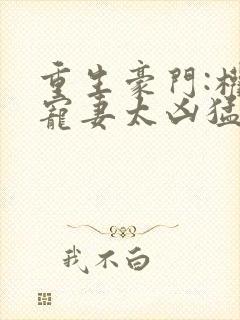 重生豪門:權
寵妻太凶猛
我不白